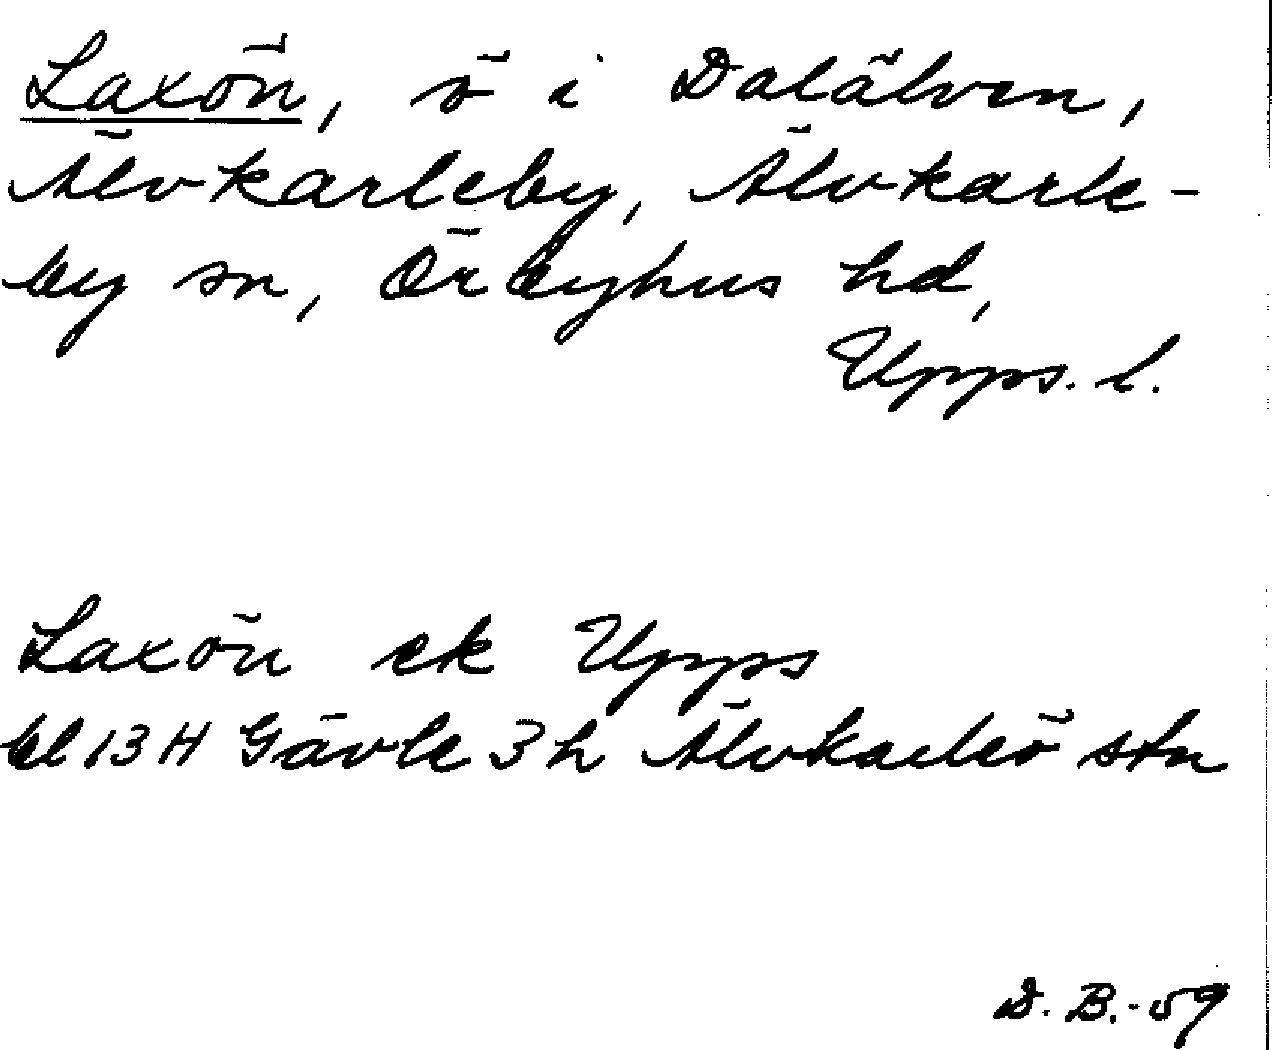 Laxön, ö i Dalälven,
Älvkarleby, Älvkarle-
by sn, Örbyhus hd,
Upps. l.
Laxön ek Upps
bl 13 H Gävle 3 h Älvkarleö stn
D. B. -59